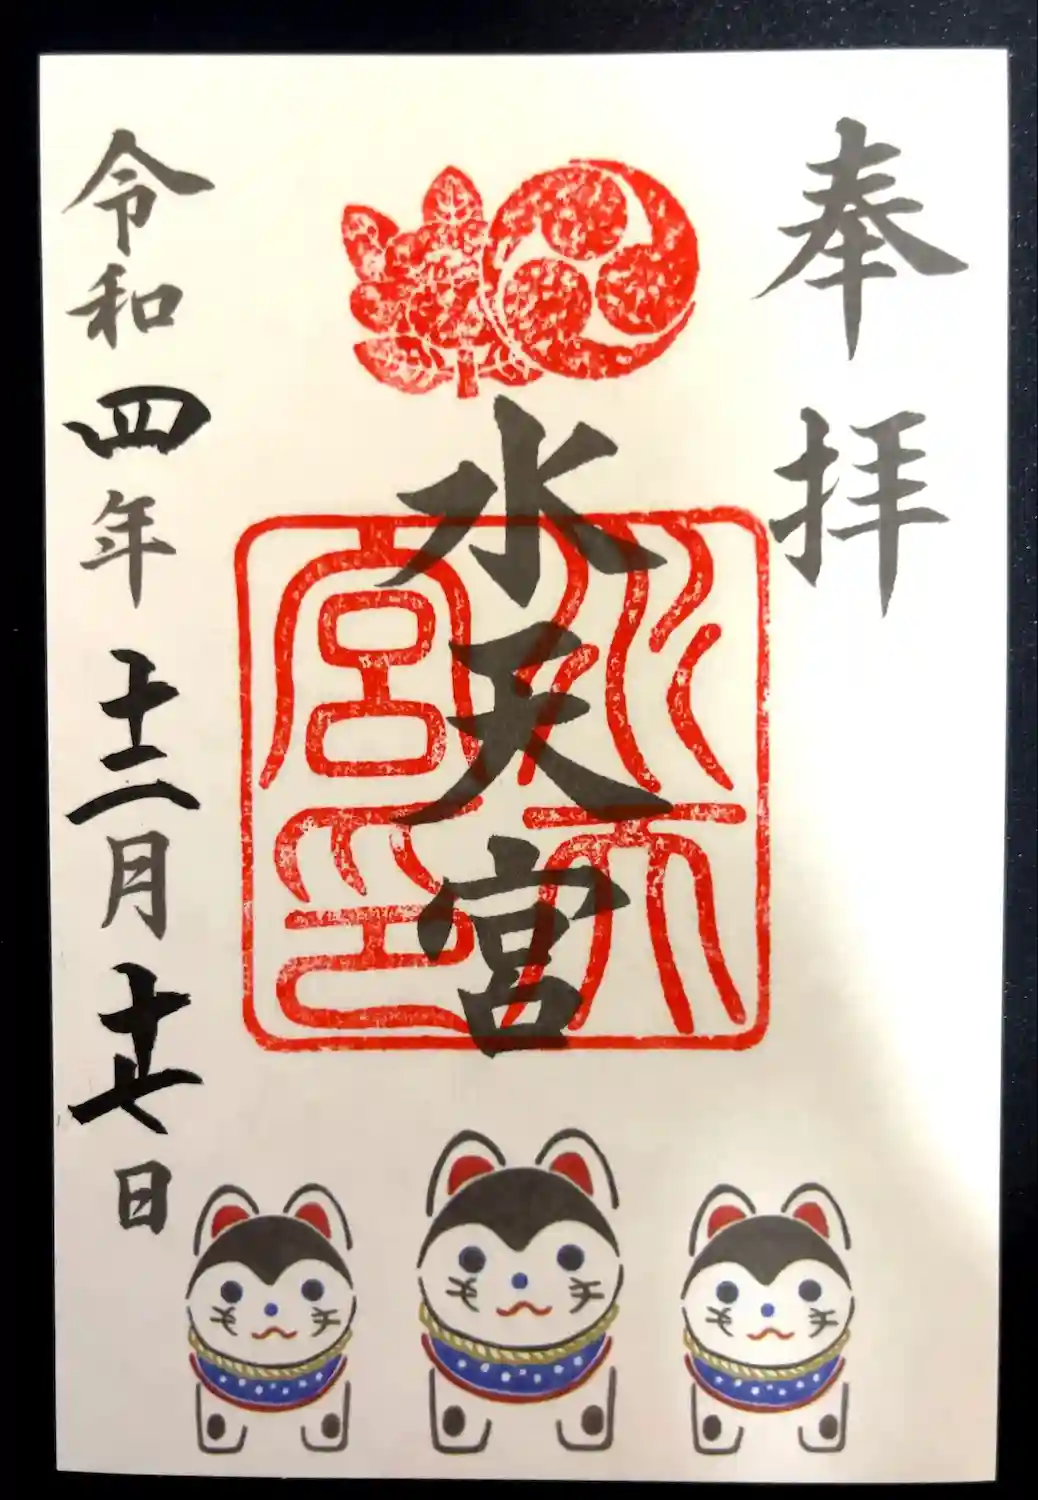 奉拝
水天宮
水天宮印
令和四年十二月十七日